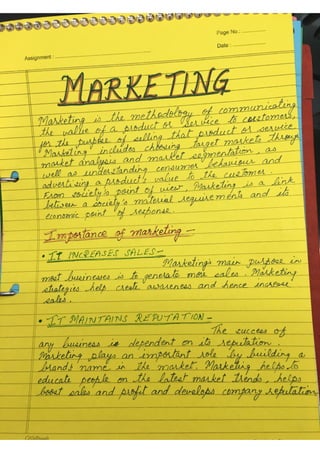 Page No.:
Date:
Assignment:
MARKETING
Marketing is the methodology of communicating
the value of a product or service to customers,
for the purpose of selling that product or service
Marketing includes choosing target markets through
market analysis and market segmentation, as
well as understanding consumer behaviour and
advertising a product's value to the customer
From society's point of view, Marketing is a link
between a society's material requirements and its
economic point of response.
Importance of marketing -
• IT INCREASES SALES -
Marketing's main purpose in
most businesses is to generate more sales. Marketing
strategies help create awareness and hence increase
sales.
• IT MAINTAINS REPUTATION -
The success of
any business is dependent on its reputation.
Marketing plays an important role by building a
brands name in the market. Marketing helps to
educate people on the latest market trends, helps
boost sales and profit and develops company reputation